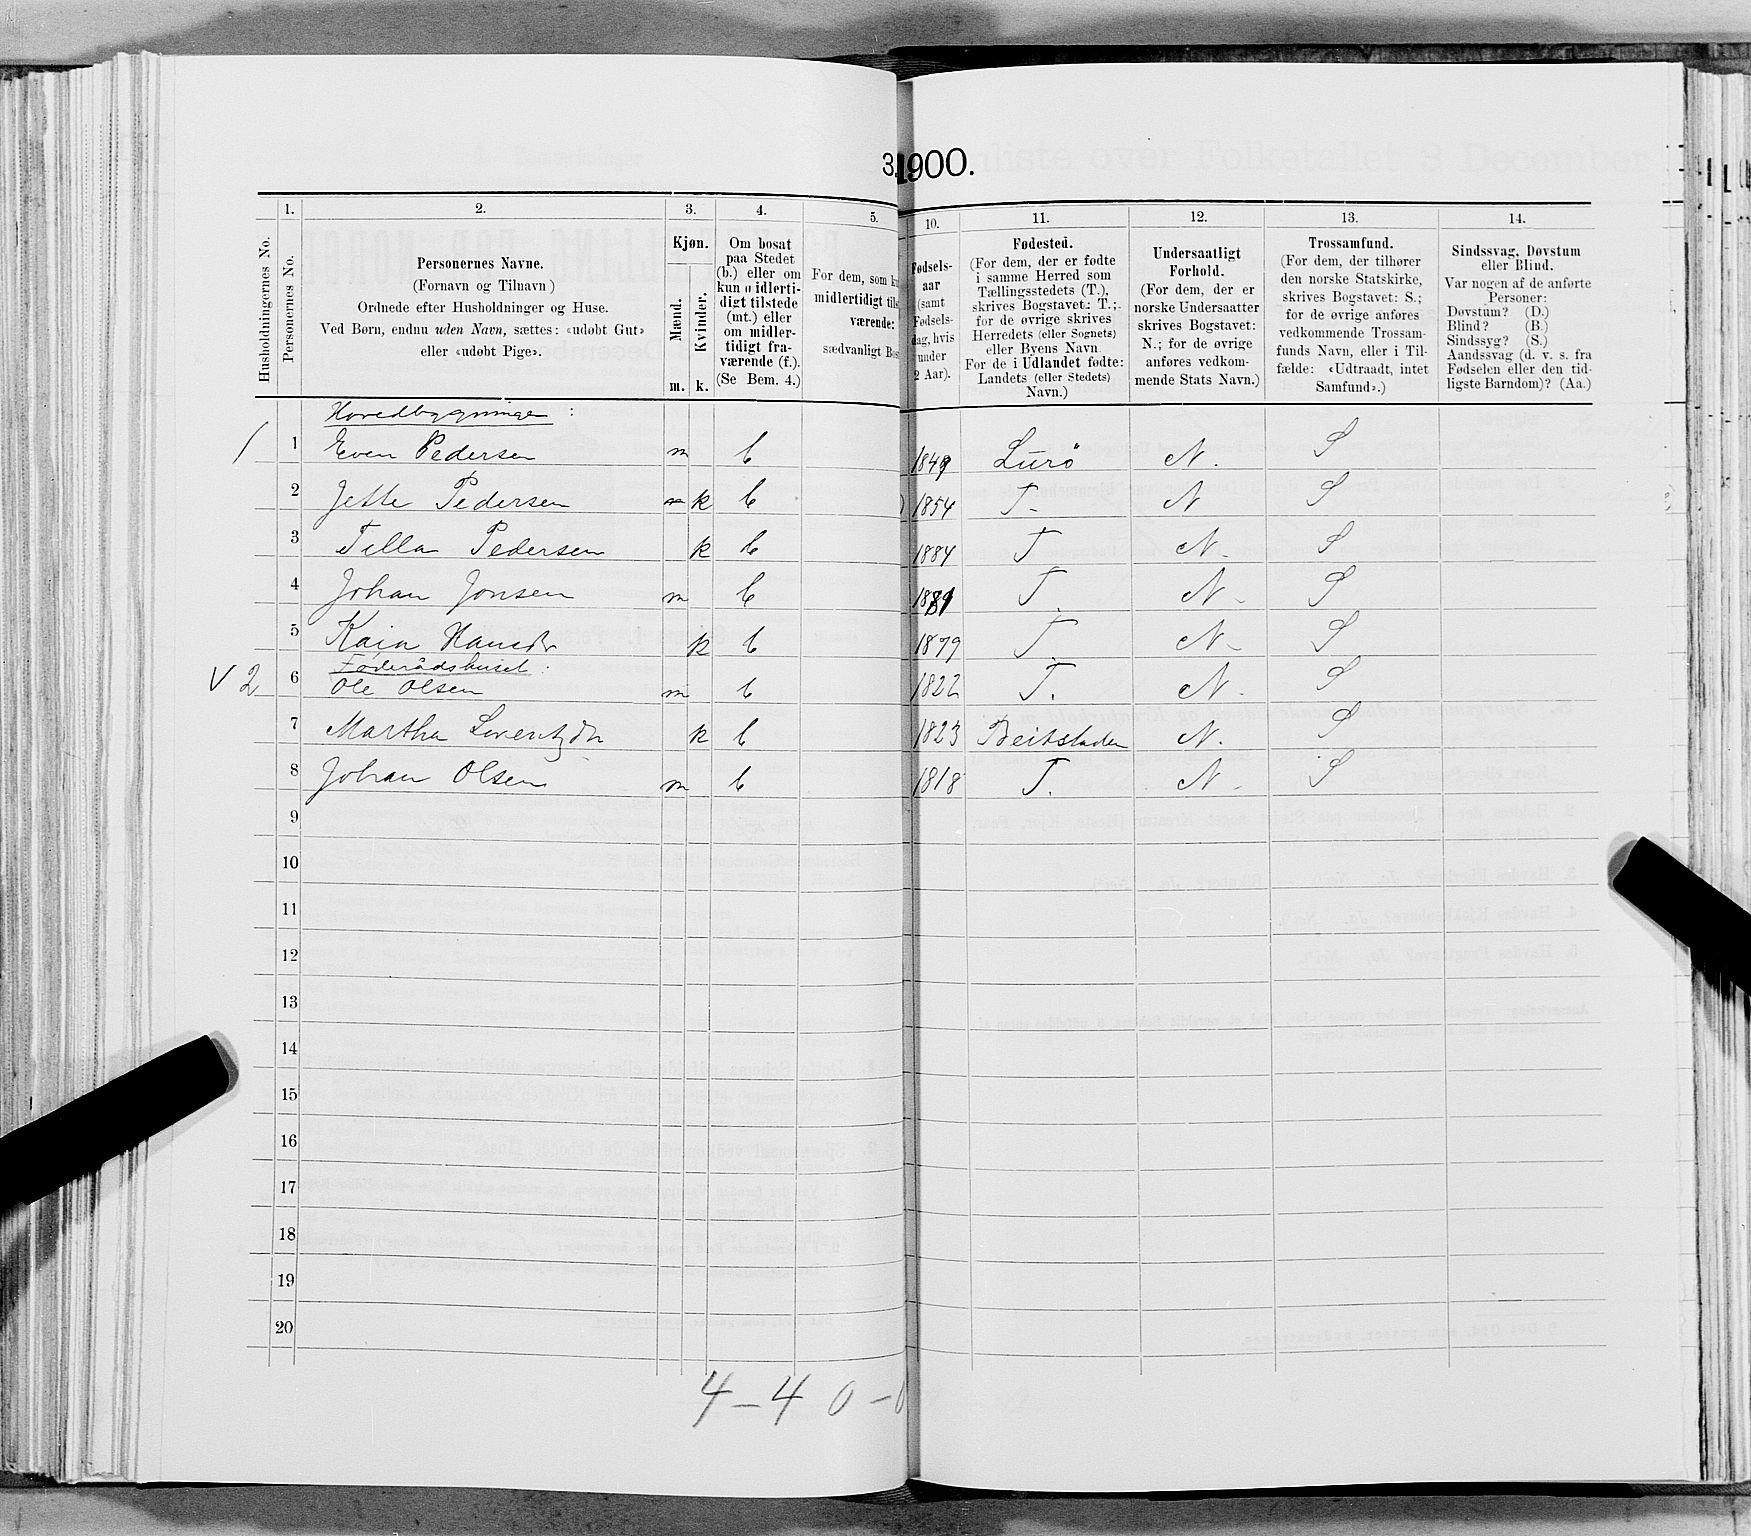 3. 1900.
1. 2. 3. 4. 5. 10. 11. 12. 13. 14.
Husholdningernes No.
Personernes No.
Personernes Navne.
(Fornavn og Tilnavn)
Ordnede efter Husholdninger og Huse.
Ved Børn, endnu uden Navn, sættes: «udøbt Gut»
eller «udøbt Pige».
Kjøn.
Mænd.
Kvinder.
m. k.
Om bosat
paa Stedet
(b.) eller om
kun midlerti-
digt tilstede
(mt.) eller
om midler-
tidigt fra-
værende (f.).
(Se Bem. 4.)
For dem, som k
midlertidigt til
værende:
sædvanligt Bo
Fødsels-
aar
(samt
Fødsels-
dag, hvis
under
2 Aar).
Fødested.
(For dem, der er fødte
i samme Herred som
Tællingsstedets (T.),
skrives Bogstavet: T.;
for de øvrige skrives
Herredets (eller Sognets)
eller Byens Navn.
For de i Udlandet fødte:
Landets (eller Stedets)
Navn.)
Undersaatligt
Forhold.
(For dem, der er
norske Undersaatter
skrives Bogstavet:
N.; for de øvrige
anføres vedkom-
mende Stats Navn.)
Trossamfund.
(For dem, der tilhører
den norske Statskirke,
skrives Bogstavet: S.;
for de øvrige anføres
vedkommende Trossam-
funds Navn, eller i Til-
fælde: «Udtraadt, intet
Samfund».)
Sindssvag, Døvstum
eller Blind.
Var nogen af de anførte
Personer:
Døvstum? (D.)
Blind? (B.)
Sindssyg? (S.)
Aandssvag (d. v. s. fra
Fødselen eller den tid-
ligste Barndom)? (Aa.)
Hovedbygningen:
1 1 Even Pedersen m b 1849 Lurö N. S
2 Jette Pedersen k b 1854 T- N S
3 Tilla Pedersen k b 1884 T N- S
4 Johan Jonsen m b T. N- S
5 Kaia Hansdr k b 1879 T. N- S
Föderådshuset:
V 2 6 Ole Olsen m b 1822 T. N- S
7 Martha k b 1823 Beitstaden N. S
8 Johan Olsen m b 1818 T. N- S
9
10
11
12
13
14
15
16
17
18
19
20
4-4 0-0